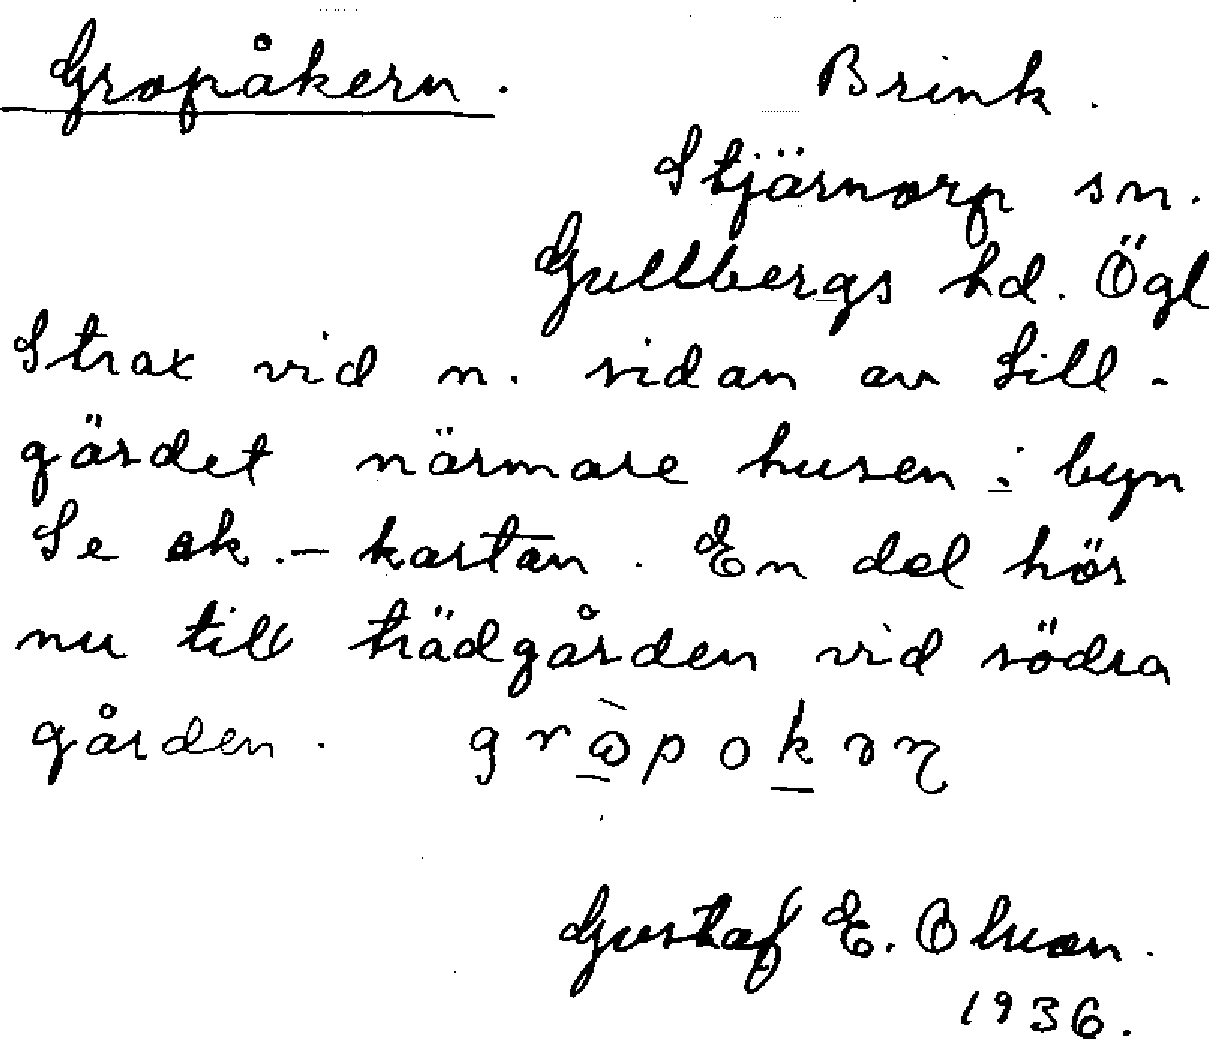 Gropåkern. Brink.
Stjärnorp sn.
Gullbergs hd. Ögl
Strax vid n. sidan av Lill-
gärdet närmare husen i byn
Se ek.-kartan. En del hör
nu till trädgården vid södra
gården.
Gustaf E. Olsson.
1936.